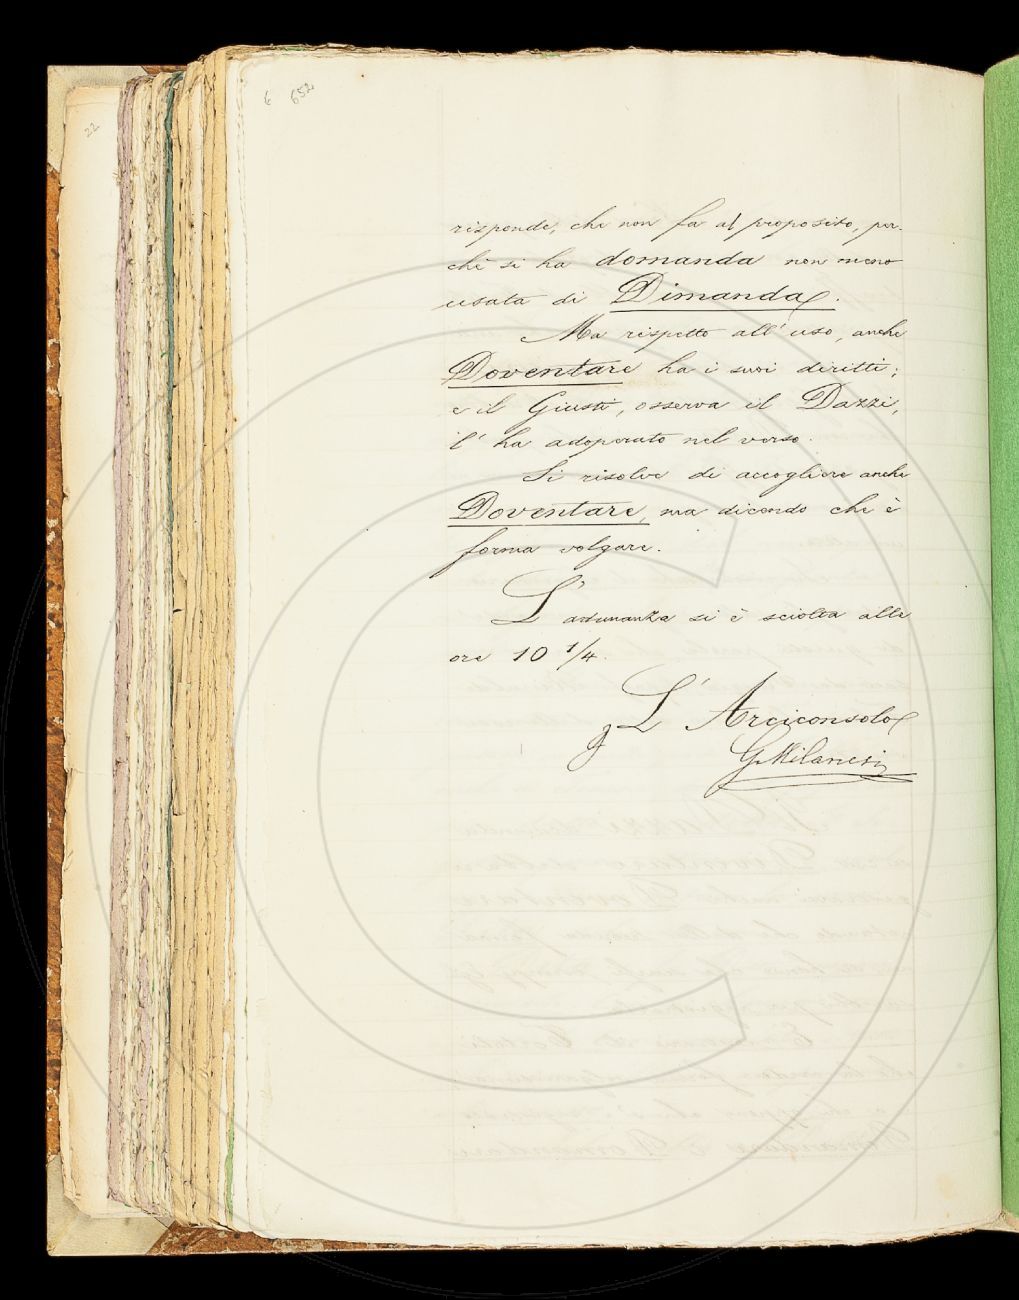 22
6 652
risponde, che non fa al proposito, per-
chè si ha domanda non meno
usata di Dimanda.
Ma rispetto all'uso, anche
Doventare ha i suoi diritti;
e il Giusti, osserva il Dazzi,
l'ha adoperato nel verso.
Si risolve di accogliere anche
Doventare, ma dicendo che è
forma volgare.
L'adunanza si è sciolta alle
ore 10 1/4.
L'Arciconsolo
GMilanesi